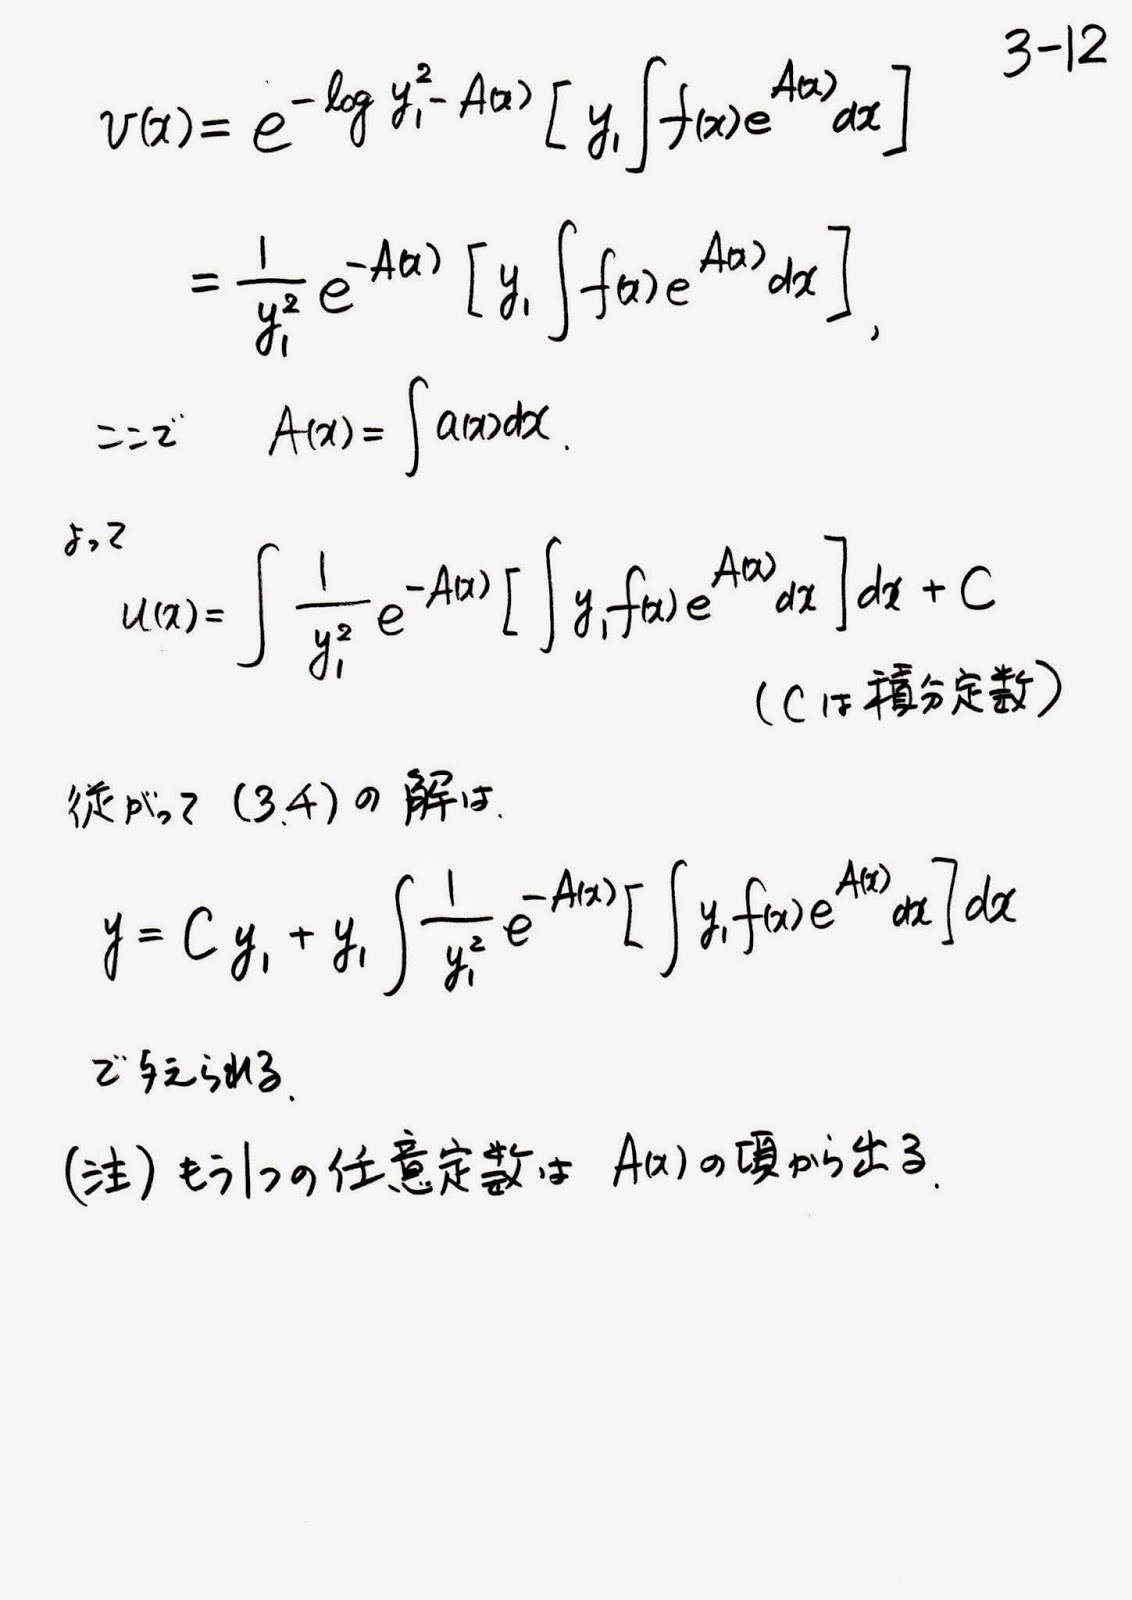 3-12
v(x) = e^{-log y₁² - A(x)} [ y₁ ∫ f(x) e^{A(x)} dx ]
= \frac{1}{y₁²} e^{-A(x)} [ y₁ ∫ f(x) e^{A(x)} dx ] ,
ここで A(x) = ∫ a(x) dx .
よって
u(x) = ∫ \frac{1}{y₁²} e^{-A(x)} [ ∫ y₁ f(x) e^{A(x)} dx ] dx + C
(Cは積分定数)
従がって (3.4) の解は.
y = C y₁ + y₁ ∫ \frac{1}{y₁²} e^{-A(x)} [ ∫ y₁ f(x) e^{A(x)} dx ] dx
で与えられる.
(注) もう1つの任意定数は A(x) の項から出る.